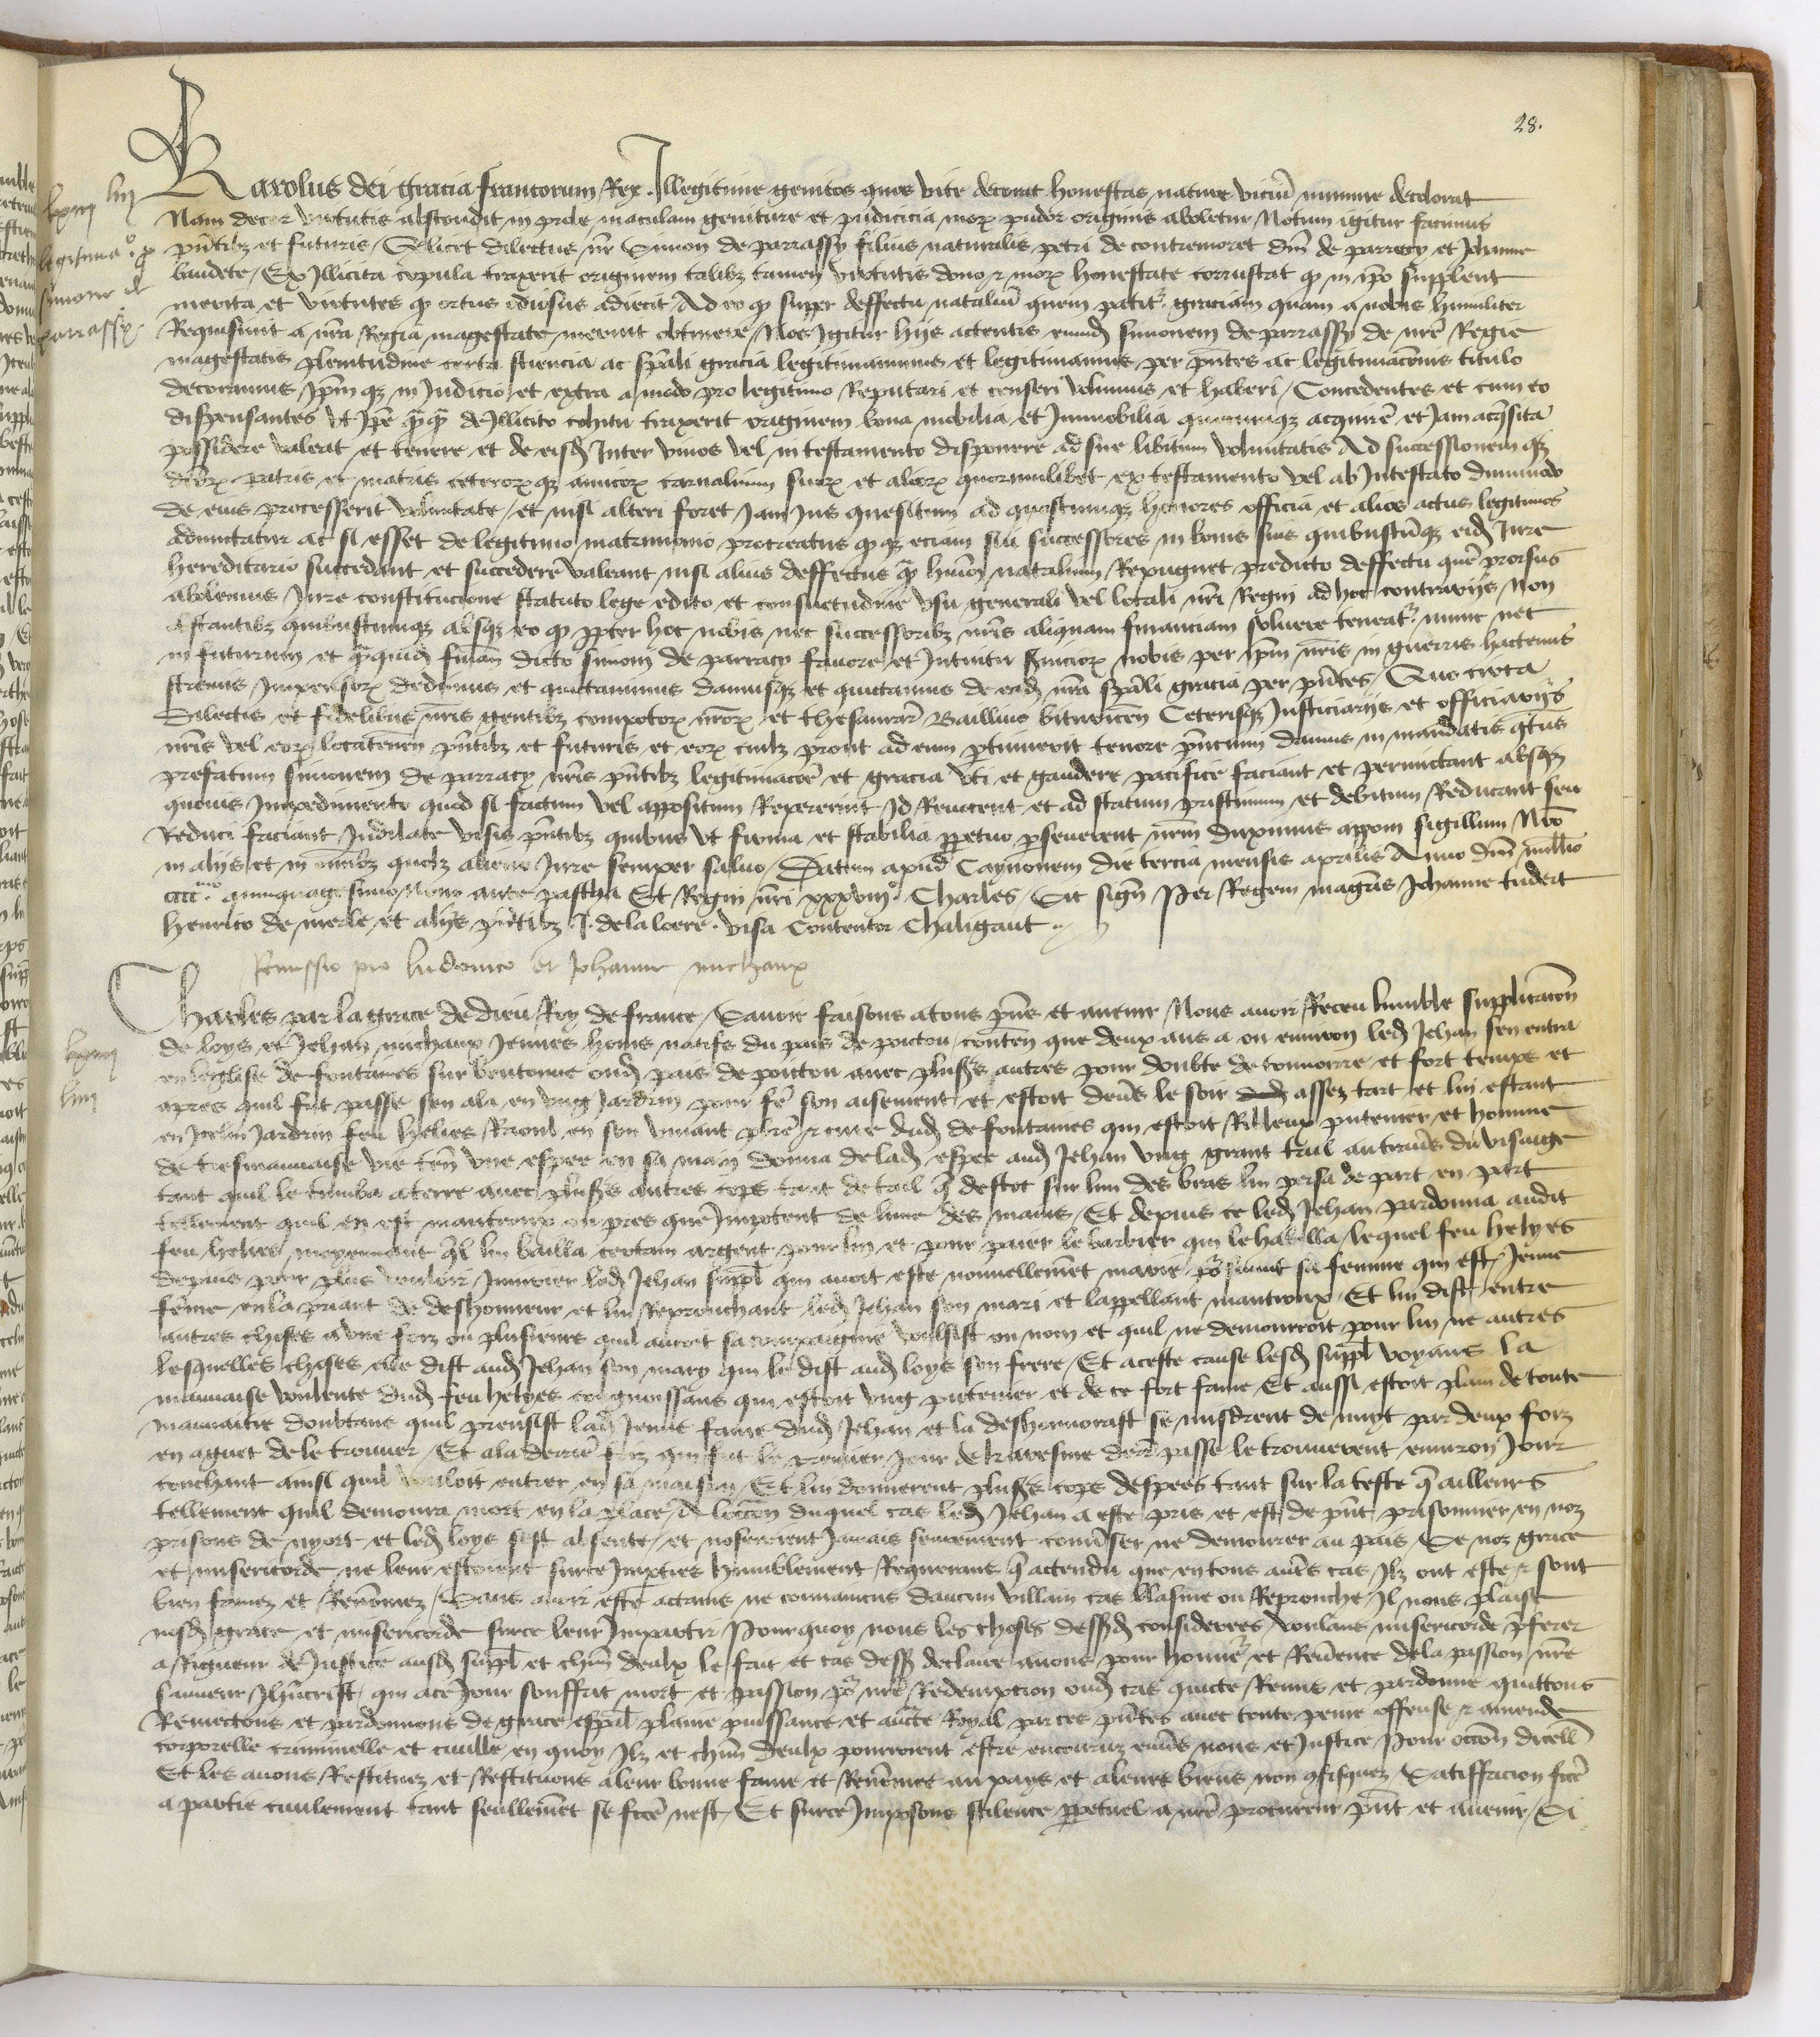 28.
lxxiiii liii
legitimatio pro
simone de
parrassy
Karolus dei gracia francorum Rex. Illegitime genitos quos vite decorat honestas nature viciũ minime decolorat
Nam decor virtutis abscondit in prole maculam geniture et pudicicia morꝝ pudor originis aboletur Notum igitur facimus
pñtibꝫ et futuris / Qd licet dilectus nr̃ Simon de parrassy filius naturalis petri de contremoret dñi de parracy et Johanne
baudete / Ex Illicita copula traxerit originem talibꝫ tamen virtutis dono ⁊ morꝝ honestate corruscat qꝫ in ip̃o supplent
merita et virtutes qꝫ ortus odiosus adiecit Ad eo qꝫ super deffectu nataliũ quem patitr graciam quam a nobis humiliter
Requisiuit a nr̃a Regia magestate meruit obtinere / Nos Igitur hijs actentis eundẽ simonem de parrassy de nr̃e Regie
magestatis plenitudine certa sciencia ac sp̃ali gracia legitimauimus et legitimamus per pñtes ac legitimacõnis titulo
decoramus Ip̃mqꝫ in Judicio et extra amodo pro legitimo Reputari et censeri volumus et haberi / Concedentes et cum eo
dispensantes vt Ip̃e qꝫqꝫ de Illicito cohitu traxerit originem bona mobilia et Immobilia quecumqꝫ acquirẽ et Jam acq̃sita
possidere valeat et tenere et de eisd̃ Inter viuos vel in testamento disponere ad sue libitum voluntatis Ad successionemqꝫ
dictoꝝ patris et matris ceterorꝝqꝫ amicorꝝ carnalium suorꝝ et aliorꝝ quorumlibet ex testamento vel ab Intestato dummodo
de eius processerit voluntate / et nisi alteri foret Jam Jus quesitum ad quoscumqꝫ honores officia et alios actus legitimos
admictatur ac si esset de legitimo matrimonio procreatus qꝫqꝫ eciam sui successores in bonis suis quibuscũqꝫ eid̃ Jure
hereditario succedant et succedere valeant nisi alius deffectus qꝫ huiõi natalium Repugnet predicto deffectu quẽ prorsus
abolemus Jure constitucione statuto lege edito et consuetudine vsu generali vel locali nr̃i Regni ad hoc contrarijs Non
obstantibꝫ quibuscumqꝫ absqꝫ eo qꝫ ꝓpter hoc nobis nec successoribꝫ nr̃is aliquam financiam soluere teneatr nunc nec
in futurum et qꝫquid̃ finan̄ dicto simoni de parracy fauore et Intuitu seruiciorꝝ nobis per ip̃m nr̃is in guerris hactenus
strenue Impensorꝝ dedimus et quictauimus damusqꝫ et quictamus de ead̃ nr̃a sp̃ali gracia per pñtes / Quo circa
Dilectis et fidelibus nr̃is gentibꝫ compotorꝝ nr̃orꝝ et thesaurar̃ Balliuo bituricen̄ Ceterisqꝫ Justiciarijs et officiarijs
nr̃is vel eorꝝ locatenen̄ pñtibꝫ et futuris et eorꝝ cuilꝫ prout ad eum ꝑtinuerit tenore pñcium damus in mandatis q̃tus
prefatum simonem de parracy nr̃is pñtibꝫ legitimacõe et gracia vti et gaudere pacifice faciant et permictant absqꝫ
quouis Impedimento quod si factum vel appositum Repererint Id Reuocent et ad statum pristinum et debitum Reducant seu
Reduci faciant Indilate visis pñtibꝫ quibus vt firma et stabilia ꝑpetuo ꝑseuerent nr̃m duximus appom̃ sigillum Nr̃o
in alijs et in oĩbꝫ quolꝫ alieno Jure semper saluo / Datum apud Caynonem die tercia mensis aprilis Anno dñi mill̃io
cccc.mo quinquagesimo Nono ante pascha Et Regni nr̃i xxxviijo. Charles / Sic sign̄ Per Regem magr̃is Johanne tudert
henrico de merle et alijs pñtibꝫ J. delaloere. visa Contentor Chaligaut
Remissio pro ludouico et Johanne michaux
lxxiiii
liiii
Charles par la grace de dieu Roy de france / Sauoir faisons a tous p̃ns et auenir / Nous auoir Receu lumble supplicacõn
de loys et Jehan michaux Jeunes hom̃es natifs du pais de poictou / conten̄ que deux ans a ou enuiron led̃ Jehan sen entra
en leglise de fontaines sur boutonne oud̃ pais de poictou auec plus̃rs autres pour doubte de tonnoirre et fort temps et
apres quil fut passe sen ala en vng Jardrin pour fẽ son aisement et estoit deũs le soir assez tart et lui estant
en Icelui Jardrin feu helies Raoul en son viuant p̃bre ⁊ cure dud̃ de fontaines qui estoit Rilleux putenier et homme
de tresmauuaise vie ten̄ vne espee en sa main donna de lad̃ espee aud̃ Jehan vng grant tail au trauers du visaige
tant quil le tumba a terre auec plus̃rs autres cops tant de tail q̃ destoc sur lun des bras lui persa de part en part
tellement quil en est mautroux ou pres que Impotent de lune des mains / Et depuis ce led̃ Jehan pardonna audit
feu helies moyennant q̃l lui bailla certain argent pour lui et pour paier le barbier qui le habilla / lequel feu helyes
depuis pour plus vouloir Iniurier led̃ Jehan supp̃l qui auoit este nouuellem̃t marie sa femme qui est Jeune
fem̃e en la priant de deshonneur et lui Reprouchant led̃ Jehan son mari et lappellant mautroux / Et lui dist entre
autres choses a vne foiz ou plusieurs quil auroit sa compaignie voulsist ou non et quil ne demourroit pour lui ne autres
lesquelles choses elle dist aud̃ Jehan son mary qui le dist aud̃ loys son frere / Et a ceste cause lesd̃ supp̃l voyans la
mauuaise voulente dud̃ feu helyes congnoissans qui estoit vng putenier et de ce fort fame Et aussi estoit plain de toute
mauuaitie doubtans quil prensist lad̃ Jeune fame dud̃ Jehan et la deshonnorast se misdrent de nuyt par deux foiz
en aguet de le trouuer / Et a la derriẽ foiz qui fut le premier Jour de karesme derr̃ passe le trouuerent enuiron Jour
couchant ainsi quil vouloit entrer en sa maison / Et lui donnerent plus̃rs cops despees tant sur la teste q̃ ailleurs
tellement quil demoura mort en la place / A loccõn duquel cas led̃ Jehan a este pris et est de p̃nt prisonnier en noz
prisons de nyort et led̃ loys sest absente / et noseroient Jamais seurement conũser ne demourer au pais / Se noz grace
et misericorde ne leur estoient sur ce Imꝑties humblement Requerans q̃ actendu que en tous aut̃s cas Ilz ont este ⁊ sont
bien famez et Renõmez / Sans auoir este actains ne conuaincus daucun villain cas blasme ou Reprouche / Il nous plaise
nosd̃ grace et misericorde sur ce leur Impartir / Pourquoy nous les choses dess̃d̃ considerees / voulans misericorde p̃ferer
a Rigueur de Justice ausd̃ supp̃l et chũn deulx le fait et cas dess̃ declaire auons pour honnẽr et Reũence de la passion nr̃e
sauueur Jhũcrist qui a ce Jour souffrit mort et passion po nr̃e Redempcion oud̃ cas quicte Remis et pardonne quictons
Remectons et pardonnons de grace esp̃al plaine puissance et auct̃e Royal par ces p̃ntes auec toute peine offense ⁊ amende
corporelle criminelle et ciuille en quoy Ilz et chũn deulx pourroient estre encouruz enũs nous et Justice Pour occõn dicell̃
Et les auons Restituez et Restituons a leur bonne fame et Renõmee au pays et a leurs biens non ꝯfisquez / Satiffacion fc̃e
a partie ciuilement tant seullem̃t se fc̃e nest / Et sur ce Imposons scilence ꝑpetuel a nr̃e procureur p̃nt et auenir / Si